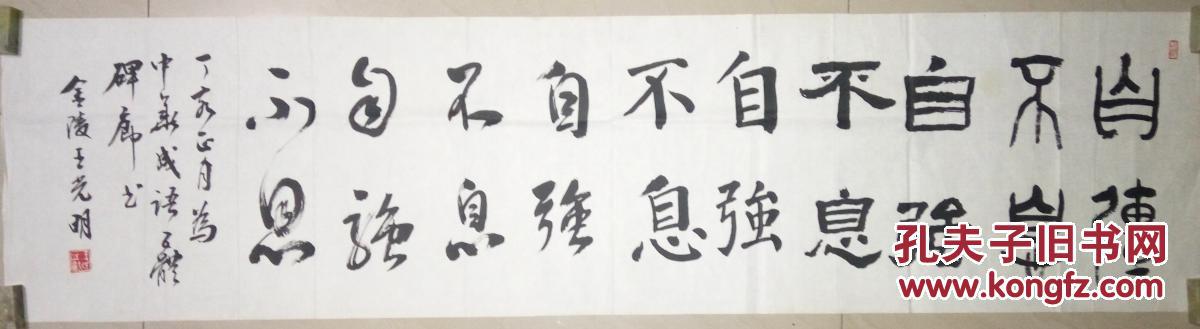 自強
不息
自強
不息
自強
不息
自強
不息
自強
不息
丁亥正月為
中華成語五體
碑廊书
金陵王光明
孔夫子旧书网
www.kongfz.com